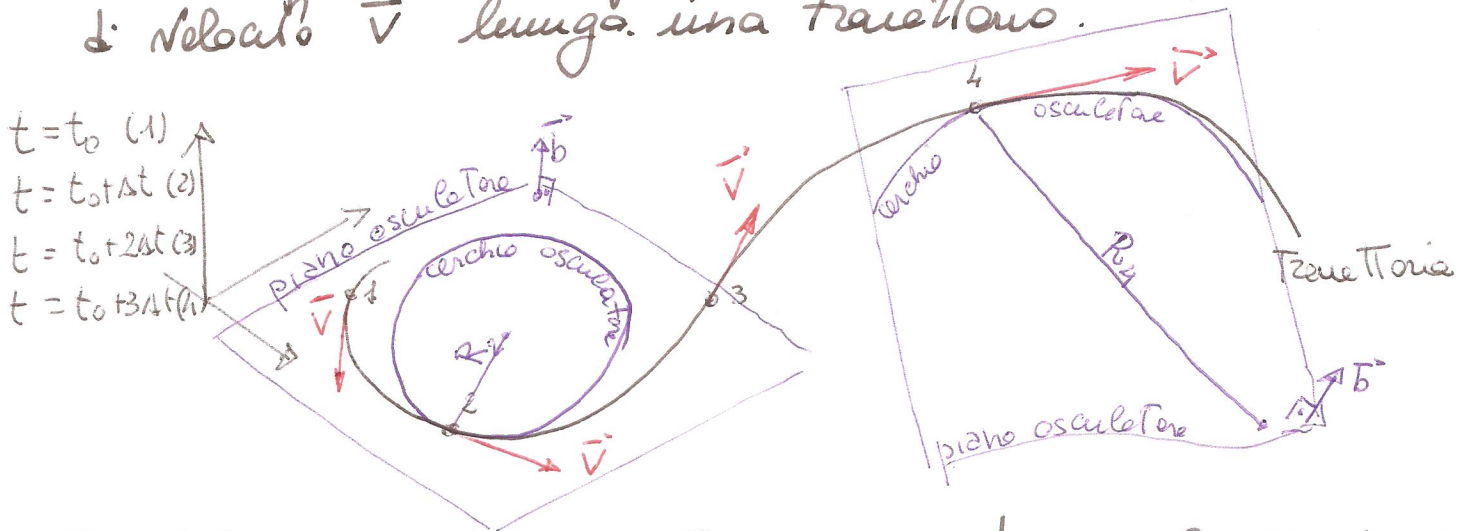 di velocità v⃗ lungo una traiettoria.
t = t₀ (1)
t = t₀+Δt (2)
t = t₀+2Δt (3)
t = t₀+3Δt (4)
piano osculatore
b⃗
cerchio osculatore
R₂
1
v⃗
2
v⃗
3
v⃗
4
v⃗
cerchio osculatore
R₄
traiettoria
b⃗
piano osculatore